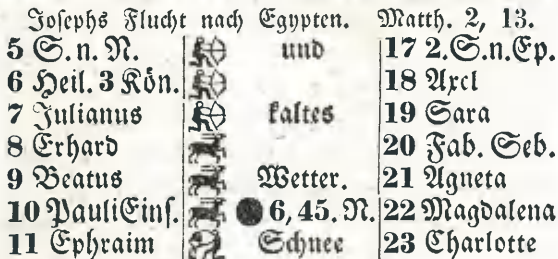 Josephs Flucht nach Egypten. Matth. 2, 13.
5 S. n. N. und 17 2. S. n. Ep.
6 Heil. 3 Kön. 18 Axel
7 Julianus kaltes 19 Sara
8 Erhard 20 Fab. Seb.
9 Beatus Wetter. 21 Agneta
10 Pauli Eins. 6, 45. N. 22 Magdalena
11 Ephraim Schnee 23 Charlotte